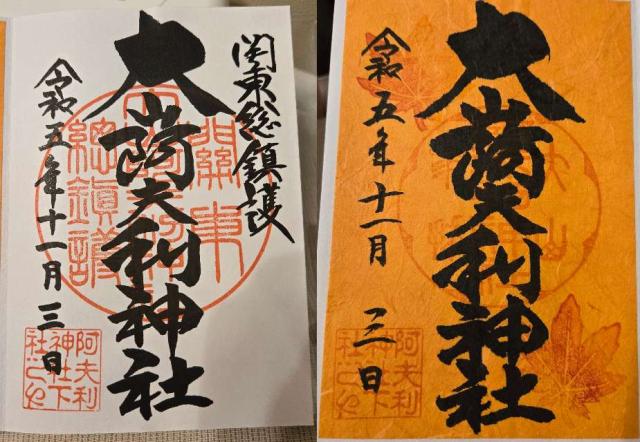 関東総鎮護
大山阿夫利神社
令和五年十一月三日
關東
總鎮護
阿夫利
神社下
社之印
大山阿夫利神社
令和五年十一月三日
阿夫利
神社下
社之印